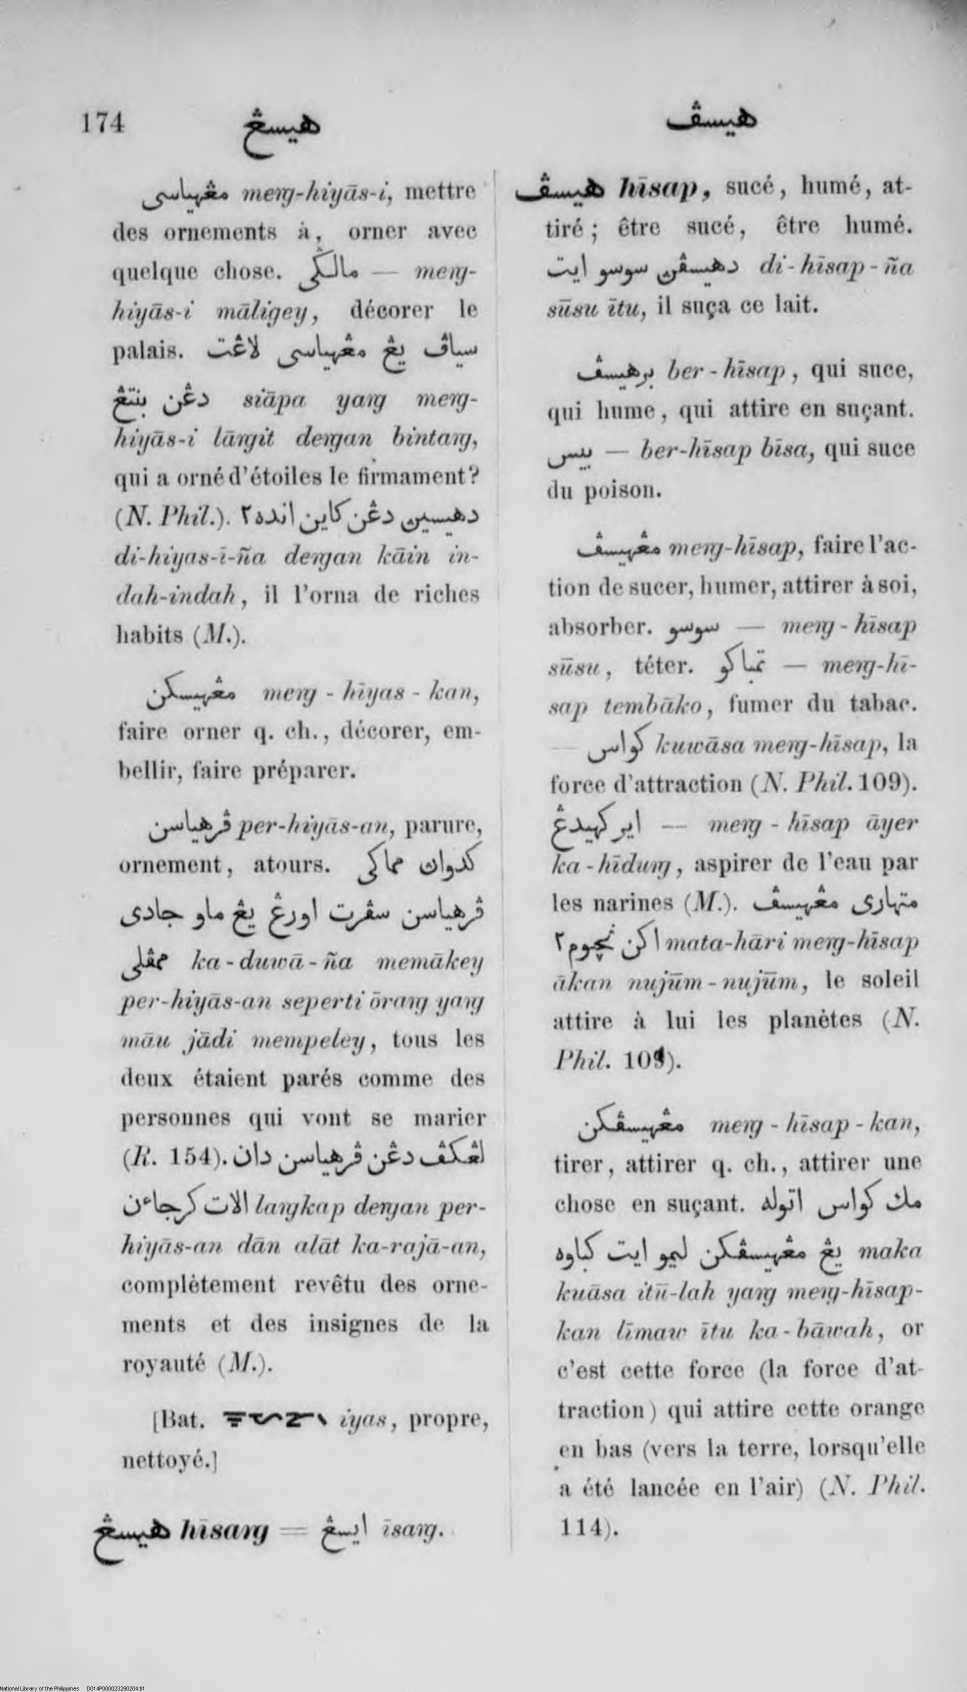 174 هيسڠ هيسڤ
مڠهياسي merg-hiyās-i, mettre
des ornements à, orner avec
quelque chose. مالڬي — merg-
hiyās-i māligey, décorer le
palais. سياڤ يڠ مڠهياسي لاڠت
دڠن بنتڠ siāpa yarg merg-
hiyās-i lārgit dergan bintarg,
qui a orné d'étoiles le firmament?
(N. Phil.). دهيسين دڠن كاين انده٢
di-hiyas-ī-ña dergan kāin in-
dah-indah, il l'orna de riches
habits (M.).
مڠهيسكن merg - hīyas - kan,
faire orner q. ch., décorer, em-
bellir, faire préparer.
ڤرهياسن per-hiyās-an, parure,
ornement, atours. كدوان مماكي
ڤرهياسن سڤرت اورڠ يڠ ماو جادي
ممڤلي ka-duwā-ña memākey
per-hiyās-an seperti ōrarg yarg
māu jādi mempeley, tous les
deux étaient parés comme des
personnes qui vont se marier
(R. 154). لڠكڤ دڠن ڤرهياسن دان
الات كرجاءن largkap dergan per-
hiyās-an dān alāt ka-rajā-an,
complètement revêtu des orne-
ments et des insignes de la
royauté (M.).
[Bat. iyas, propre,
nettoyé.]
هيسڠ hīsarg = ايسڠ īsarg.
هيسڤ hīsap, sucé, humé, at-
tiré; être sucé, être humé.
دهيسڤن سوسو ايت di-hīsap-ña
sūsu ītu, il suça ce lait.
برهيسڤ ber-hīsap, qui suce,
qui hume, qui attire en suçant.
بيس — ber-hīsap bīsa, qui suce
du poison.
مڠهيسڤ merg-hīsap, faire l'ac-
tion de sucer, humer, attirer à soi,
absorber. سوسو — merg-hīsap
sūsu, téter. تمباكو — merg-hī-
sap tembāko, fumer du tabac.
— كواس kuwāsa merg-hīsap, la
force d'attraction (N. Phil. 109).
اير كهيدڠ — merg - hīsap āyer
ka-hīdurg, aspirer de l'eau par
les narines (M.). متهاري مڠهيسڤ
اكن نجوم٢ mata-hāri merg-hīsap
ākan nujūm-nujūm, le soleil
attire à lui les planètes (N.
Phil. 109).
مڠهيسڤكن merg - hīsap - kan,
tirer, attirer q. ch., attirer une
chose en suçant. مك كواس اتوله
يڠ مڠهيسڤكن ليمو ايت كباوه maka
kuāsa itū-lah yarg merg-hīsap-
kan līmaw ītu ka-bāwah, or
c'est cette force (la force d'at-
traction) qui attire cette orange
en bas (vers la terre, lorsqu'elle
a été lancée en l'air) (N. Phil.
114).
National Library of the Philippines